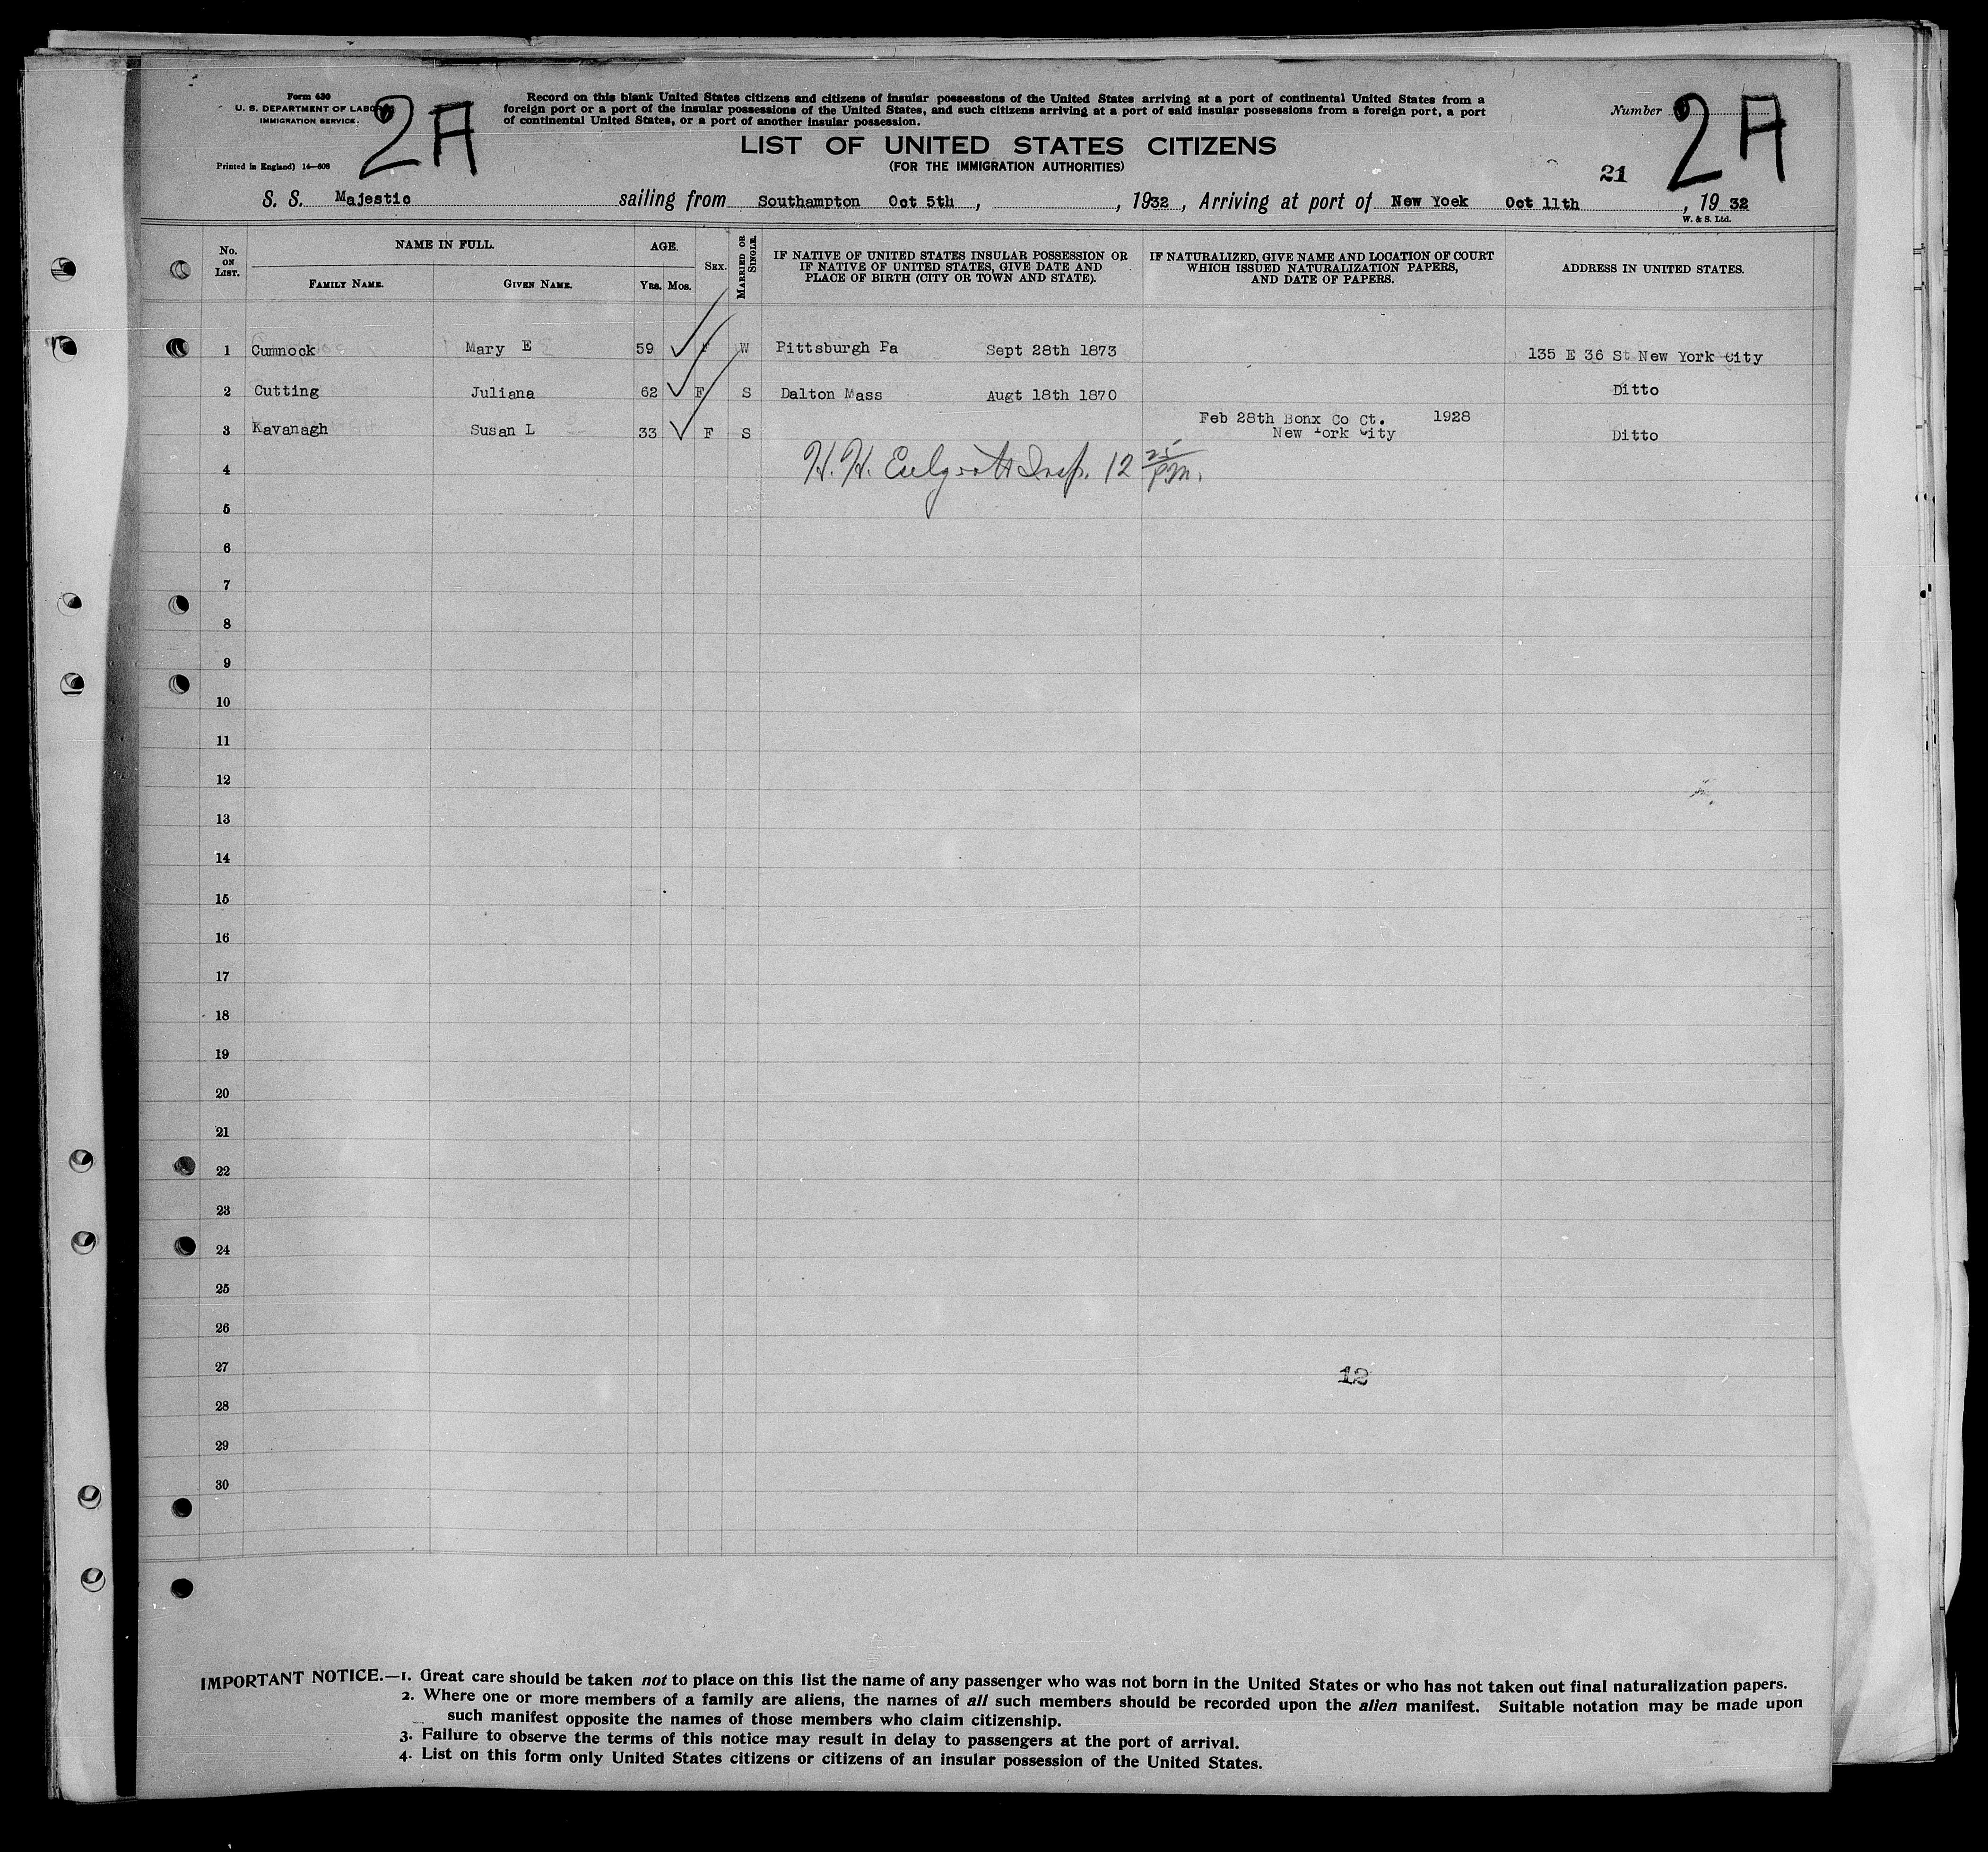 Form 630
U. S. DEPARTMENT OF LABOR
IMMIGRATION SERVICE.
Printed in England) 14—608
2A
Record on this blank United States citizens and citizens of insular possessions of the United States arriving at a port of continental United States from a
foreign port or a port of the insular possessions of the United States, and such citizens arriving at a port of said insular possessions from a foreign port, a port
of continental United States, or a port of another insular possession.
LIST OF UNITED STATES CITIZENS
(FOR THE IMMIGRATION AUTHORITIES)
Number
2A
21
S. S. Majestic sailing from Southampton Oct 5th , , 1932 , Arriving at port of New Yoek Oct 11th , 19 32
W. & S. Ltd.
No. ON LIST.
NAME IN FULL.
FAMILY NAME. GIVEN NAME.
AGE.
YRS. MOS.
SEX.
MARRIED OR SINGLE.
IF NATIVE OF UNITED STATES INSULAR POSSESSION OR
IF NATIVE OF UNITED STATES, GIVE DATE AND
PLACE OF BIRTH (CITY OR TOWN AND STATE).
IF NATURALIZED, GIVE NAME AND LOCATION OF COURT
WHICH ISSUED NATURALIZATION PAPERS,
AND DATE OF PAPERS.
ADDRESS IN UNITED STATES.
1 Cumnock Mary E 59 F W Pittsburgh Pa Sept 28th 1873 135 E 36 St New York City
2 Cutting Juliana 62 F S Dalton Mass Augt 18th 1870 Ditto
Feb 28th Bonx Co Ct. 1928
3 Kavanagh Susan L 33 F S New York City Ditto
4 H. H. Insp. 12 25 P.M.
5
6
7
8
9
10
11
12
13
14
15
16
17
18
19
20
21
22
23
24
25
26
27
12
28
29
30
IMPORTANT NOTICE.—1. Great care should be taken not to place on this list the name of any passenger who was not born in the United States or who has not taken out final naturalization papers.
2. Where one or more members of a family are aliens, the names of all such members should be recorded upon the alien manifest. Suitable notation may be made upon
such manifest opposite the names of those members who claim citizenship.
3. Failure to observe the terms of this notice may result in delay to passengers at the port of arrival.
4. List on this form only United States citizens or citizens of an insular possession of the United States.